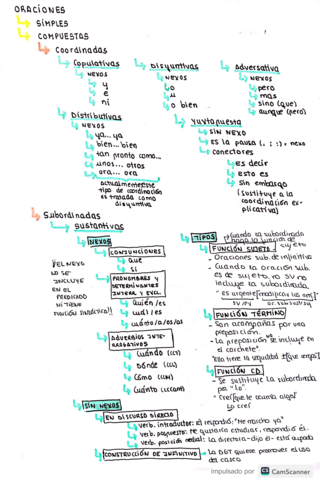 ORACIONES
SIMPLES
COMPUESTAS
Coordinadas
Copulativas
NEXOS
y
e
ni
Disyuntivas
NEXOS
o
u
o bien
Adversativa
NEXOS
pero
mas
sino (que)
aunque (pero)
Distributivas
NEXOS
ya...ya
bien...bien
tan pronto como...
unos...otros
ora...ora
actualmente este
tipo de coordinación
es tratada como
disyuntiva
Yuxtapuesta
SIN NEXO
es la pausa (, ; :) = nexo
conectores
es decir
esto es
sin embargo
(sustituye a la
coordinación ex-
plicativa)
Subordinadas
sustantivas
NEXOS
CONJUNCIONES
que
si
PRONOMBRES Y
DETERMINANTES
INTERR Y EXCL.
quién/es
cuál/es
cuánto/a/os/as
ADVERBIOS INTE-
RROGATIVOS
cuándo (CCT)
dónde (CCL)
cómo (CCM)
cuánto (CCCANT)
EL NEXO
NO SE
INCLUYE
EN EL
PREDICADO
NI TIENE
FUNCIÓN SINTÁCTICA!!
TIPOS
cuando la subordinada
haga la función de
sujeto
FUNCIÓN SUJETO
Oraciones sub. de infinitivo
Cuando la oración sub.
es de sujeto, no SV no
incluye la subordinada.
FUNCIÓN TÉRMINO
Son acompañas por una
preposición.
La preposición no se incluye en
el corchete.
FUNCIÓN CD
Se sustituye la subordinada
por "Lo".
SIN NEXOS
EN DISCURSO DIRECTO
verb. introductor: Él respondió: "Ha mucho yo"
verb. pospuesto: te gustaría estudiar, respondió él.
verb. posición medial: La directora - dijo él - está ocupada
CONSTRUCCIÓN DE INFINITIVO
La DGT quiere promover el uso
del casco
impulsado por CS CamScanner